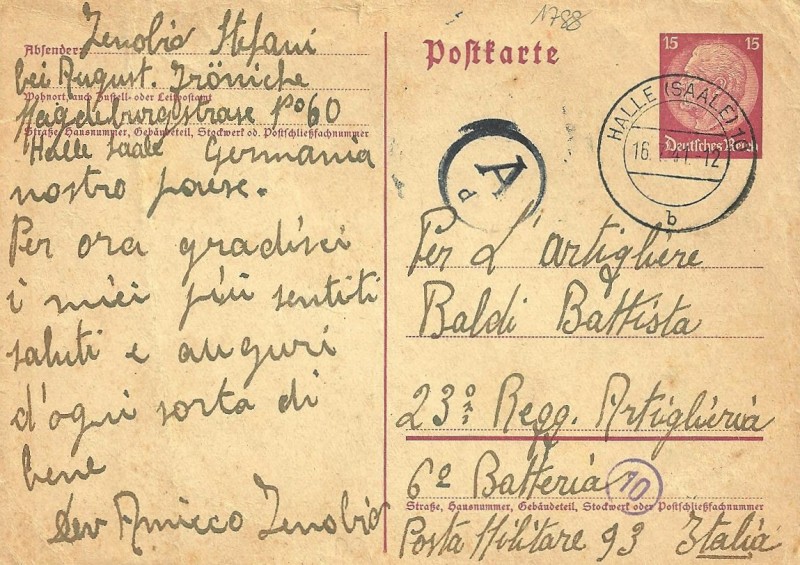 1788
Absender: Zenobio Stefani
bei August. Fröniche
Wohnort, auch Zustell- oder Leitpostamt
Magdeburgstrase No 60
Straße, Hausnummer, Gebäudeteil, Stockwerk od. Postschließfachnummer
Halle Saale Germania
nostro paese.
Per ora gradisci
i miei più sentiti
saluti e auguri
d'ogni sorta di
bene
Amicco Zenobio
Postkarte
15 15
Deutsches Reich
HALLE (SAALE)
16. 41.-12
b
A
d
Per L'artigliere
Baldi Battista
23º Regg. Artiglieria
6º Batteria
10
Straße, Hausnummer, Gebäudeteil, Stockwerk oder Postschließfachnummer
Posta Militare 93 Italia